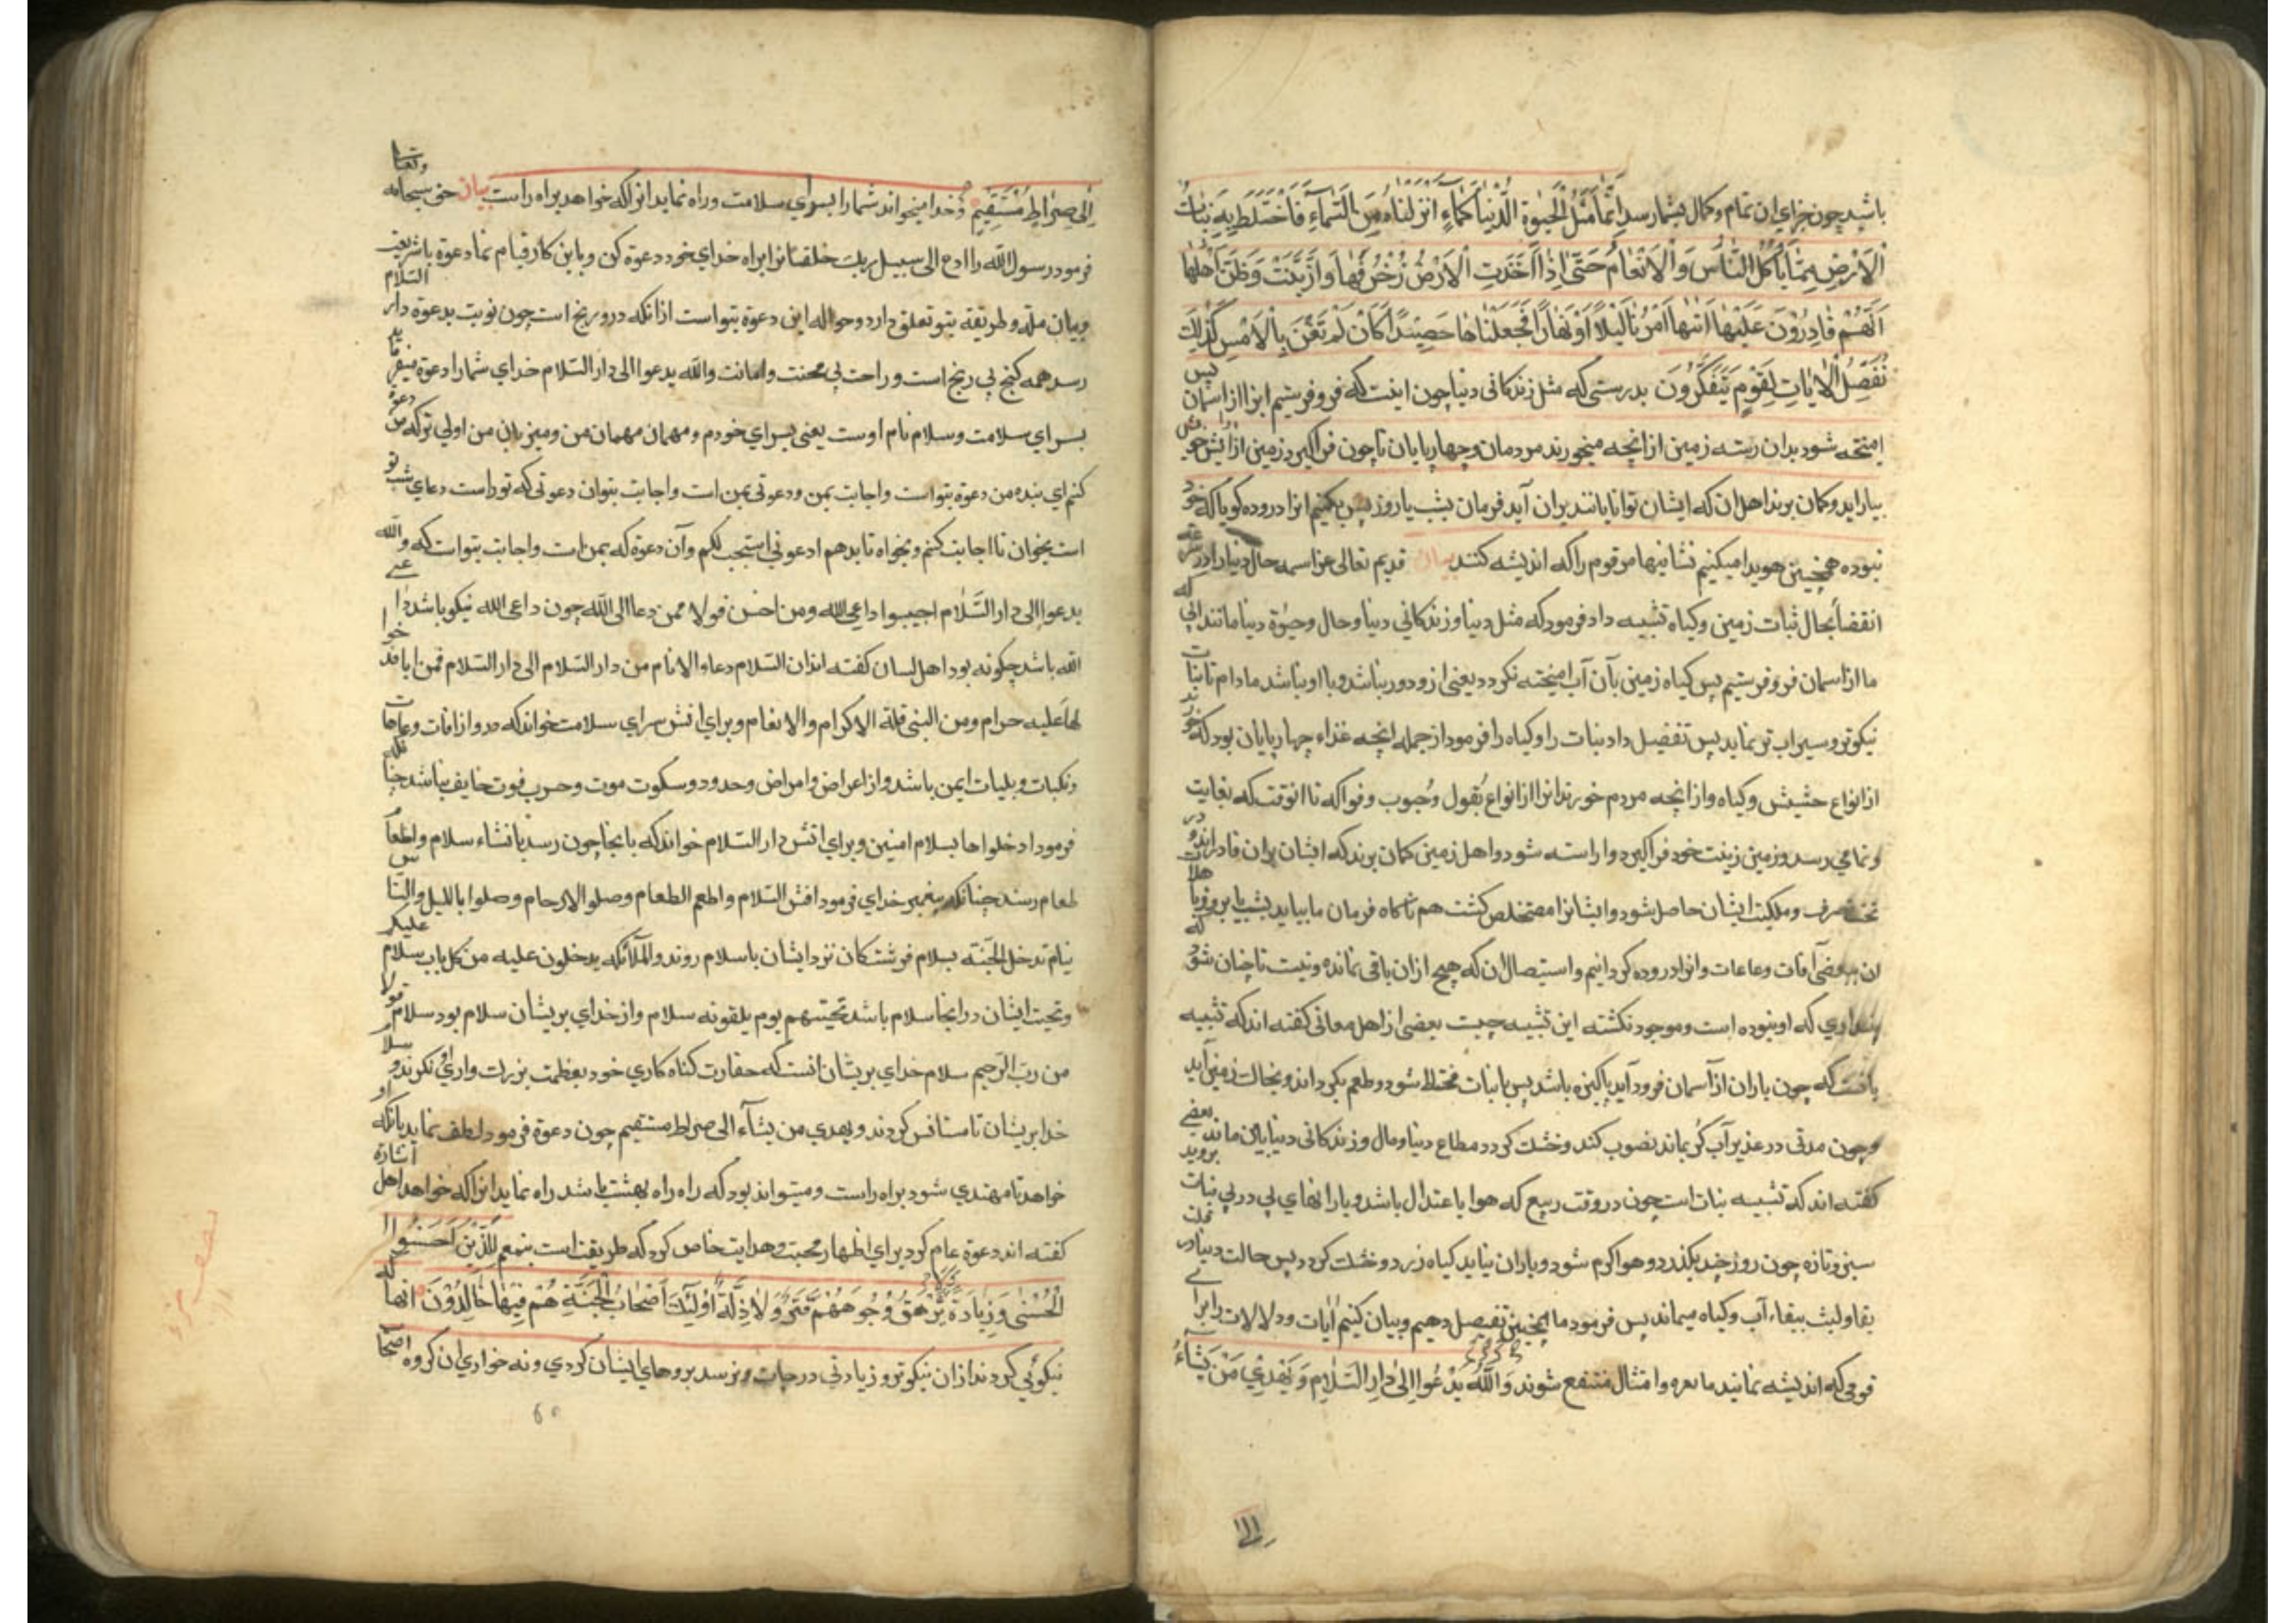 باشد چون جزای ان تمام و کمال بشما رسد اِنَّمَا مَثَلُ الْحَیٰوةِ الدُّنْیَا کَمَآءٍ اَنْزَلْنَاهُ مِنَ السَّمَآءِ فَاخْتَلَطَ بِهِ نَبَاتُ
الْاَرْضِ مِمَّا یَأْکُلُ النَّاسُ وَالْاَنْعَامُ حَتّٰی اِذَا اَخَذَتِ الْاَرْضُ زُخْرُفَهَا وَازَّیَّنَتْ وَظَنَّ اَهْلُهَا
اَنَّهُمْ قَادِرُوْنَ عَلَیْهَا اَتٰیهَا اَمْرُنَا لَیْلًا اَوْ نَهَارًا فَجَعَلْنَاهَا حَصِیْدًا کَاَنْ لَمْ تَغْنَ بِالْاَمْسِ کَذٰلِکَ
نُفَصِّلُ الْاٰیَاتِ لِقَوْمٍ یَتَفَکَّرُوْنَ بدرستی که مثل زندکانی دنیا چون ابیست که فرو فرستیم انرا از اسمان پس
امیخته شود بدان رسته زمین از انچه میخورند مردمان و چهارپایان تا چون فراکیرد زمین ارایش خویش را و
بیاراید و کمان برند اهل ان که ایشان توانایانند بران آید فرمان بشب یا روز پس بکنیم انرا دروده کویا که خود
نبوده همچنین هویدا میکنیم نشانیها مر قوم را که اندیشه کنند بیان قدیم تعالی عز اسمه حال دنیا را در سرعة
انقضا بحال نبات زمین و کیاه تشبیه داد فرمود که مثل دنیا و زندکانی دنیا و حال و حیوة دنیا مانند ابی که
ما از اسمان فرو فرستیم پس کیاه زمین بآن آب امیخته نکردد یعنی ازو دور نباشد و با او باشد مادام تا نبات
نیکوتر و سیراب تر نماید پس تفضیل داد نبات را و کیاه را فرمود از جمله انچه غذاء چهارپایان بود که خورند
از انواع حشیش و کیاه و از انچه مردم خورند انرا از انواع بقول و حبوب و فواکه تا انوقت که بغایت
و تمامی رسد و زمین زینت خود فراکیرد و اراسته شود و اهل زمین کمان برند که ایشان بران قادراند و در
تحت تصرف و ملکیت ایشان حاصل شود و ایشانرا مستخلص کشت هم ناکاه فرمان ما بیاید بشب یا بروز باهلاک
ان ببعضی آفات و عاهات و انرا دروده کردانیم و استیصال ان که هیچ ازان باقی نمانده و نیست تا چنان شود که
پنداری که او نبوده است و موجود نکشته این تشبیه چیست بعضی از اهل معانی کفته اند که تشبیه
بانست که چون باران از آسمان فرود آید پاکیزه باشد پس با نبات مختلط شود و طعم بکرداند و بحالت زمین آید
و چون مدتی در غدیر آب کر بماند نضوب کند و خشک کردد مطاع دنیا و مال و زندکانی دنیا باین ماند بعضی
کفته اند که تشبیه نبات است چون در وقت ربیع که هوا با عتدال باشد و بارانهای پی در پی نبات بروید
سبز و تازه چون روز چند بکذرد و هوا کرم شود و باران نیاید کیاه زرد و خشک کردد پس حالت دنیا در قلت
بقا و لبث ببقاء آب و کیاه میماند پس فرمود ما اینچنین تفصیل دهیم و بیان کنیم آیات و دلالات را برای
قومی که اندیشه نمایند امثال منتفع شوند وَاللّٰهُ یَدْعُوا اِلٰی دَارِ السَّلَامِ وَیَهْدِیْ مَنْ یَشَآءُ
الی
اِلٰی صِرَاطٍ مُسْتَقِیْمٍ و خدا میخواند شما را بسرای سلامت و راه نماید انرا که خواهد براه راست بیان حق سبحانه و تعالی
فرمود رسول الله را ادع الی سبیل ربک خلقانرا براه خدای خود دعوة کن و باین کار قیام نما دعوة با شریعت
و بیان ملة و طریقه بتو تعلق دارد و حواله این دعوة بتو است ازانکه درو رنج است چون نوبت بدعوة دار السلام
رسد همه کنج بی رنج است و راحت بی محنت و امانت والله یدعوا الی دار السلام خدای شما را دعوة میفرماید
بسرای سلامت و سلام نام اوست یعنی بسرای خودم و مهمان مهمان من و میزبان من اولی تر که من دعوة
کنم ای بنده من دعوة بتو است و اجابت بمن و دعوتی بمن است و اجابت بتو ان دعوتی که تو راست دعای شب تو
است بخوان تا اجابت کنم و بخواه تا بدهم ادعونی استجب لکم و آن دعوة که بمن است و اجابت بتو است که والله
یدعوا الی دار السَّلام اجیبوا داعی الله ومن احسن قولا ممن دعا الی الله چون داعی الله نیکو باشد داعی
الله باشد چکونه بود اهل لسان کفته اند ان السلام دعاء الانام من دار السلام الی دار السلام فمن
لها علیه حرام ومن البنی قلة الاکرام والانعام و برای انش سرای سلامت خواند که درو از افات و عاهات
و نکبات و بلیات ایمن باشد و از اعراض و امراض و حدود و سکوت موت و حرب فوت خایف نباشد چنانکه
فرمود ادخلوها بسلام امنین و برای انش دار السلام خواند که بانجا چون رسد بافشاء سلام و اطعام
طعام رسند چنانکه پیغمبر خدای فرمود افش السلام و اطعم الطعام وصلوا الارحام وصلوا باللیل والناس
نیام تدخل الجنة بسلام فرشتکان نزد ایشان باسلام روند والملآئکه یدخلون علیه من کل باب سلام علیکم
و تحیت ایشان در انجا سلام باشد تحیتهم یوم یلقونه سلام و از خدای بریشان سلام بود سلام قولا
من رب الرحیم سلام خدای بریشان انست که حقارت کناه کاری خود بعظمت بزرکواری او نکرند و سلام
خدا بریشان تا مستانس کردند و یهدی من یشآء الی صراط مستقیم چون دعوة فرمود لطف نماید بانکه او
خواهد تا مهتدی شود براه راست و میتواند بود که راه راه بهشت باشد راه نماید انرا که خواهد اهل اشارة
کفته اند دعوة عام کرد برای اظهار محبت و هدایت خاص کرد که طریقت است بنعم لِلَّذِیْنَ اَحْسَنُوا
الْحُسْنٰی وَزِیَادَةٌ یَرْهَقُ وُجُوهَهُمْ قَتَرٌ وَلَا ذِلَّةٌ اُولٰٓئِکَ اَصْحَابُ الْجَنَّةِ هُمْ فِیْهَا خَالِدُوْنَ انها که
نیکوئی کردند ازان نیکوتر و زیادتی درجات و نرسد برویهای ایشان کردی و نه خواری ان کروه اصحا